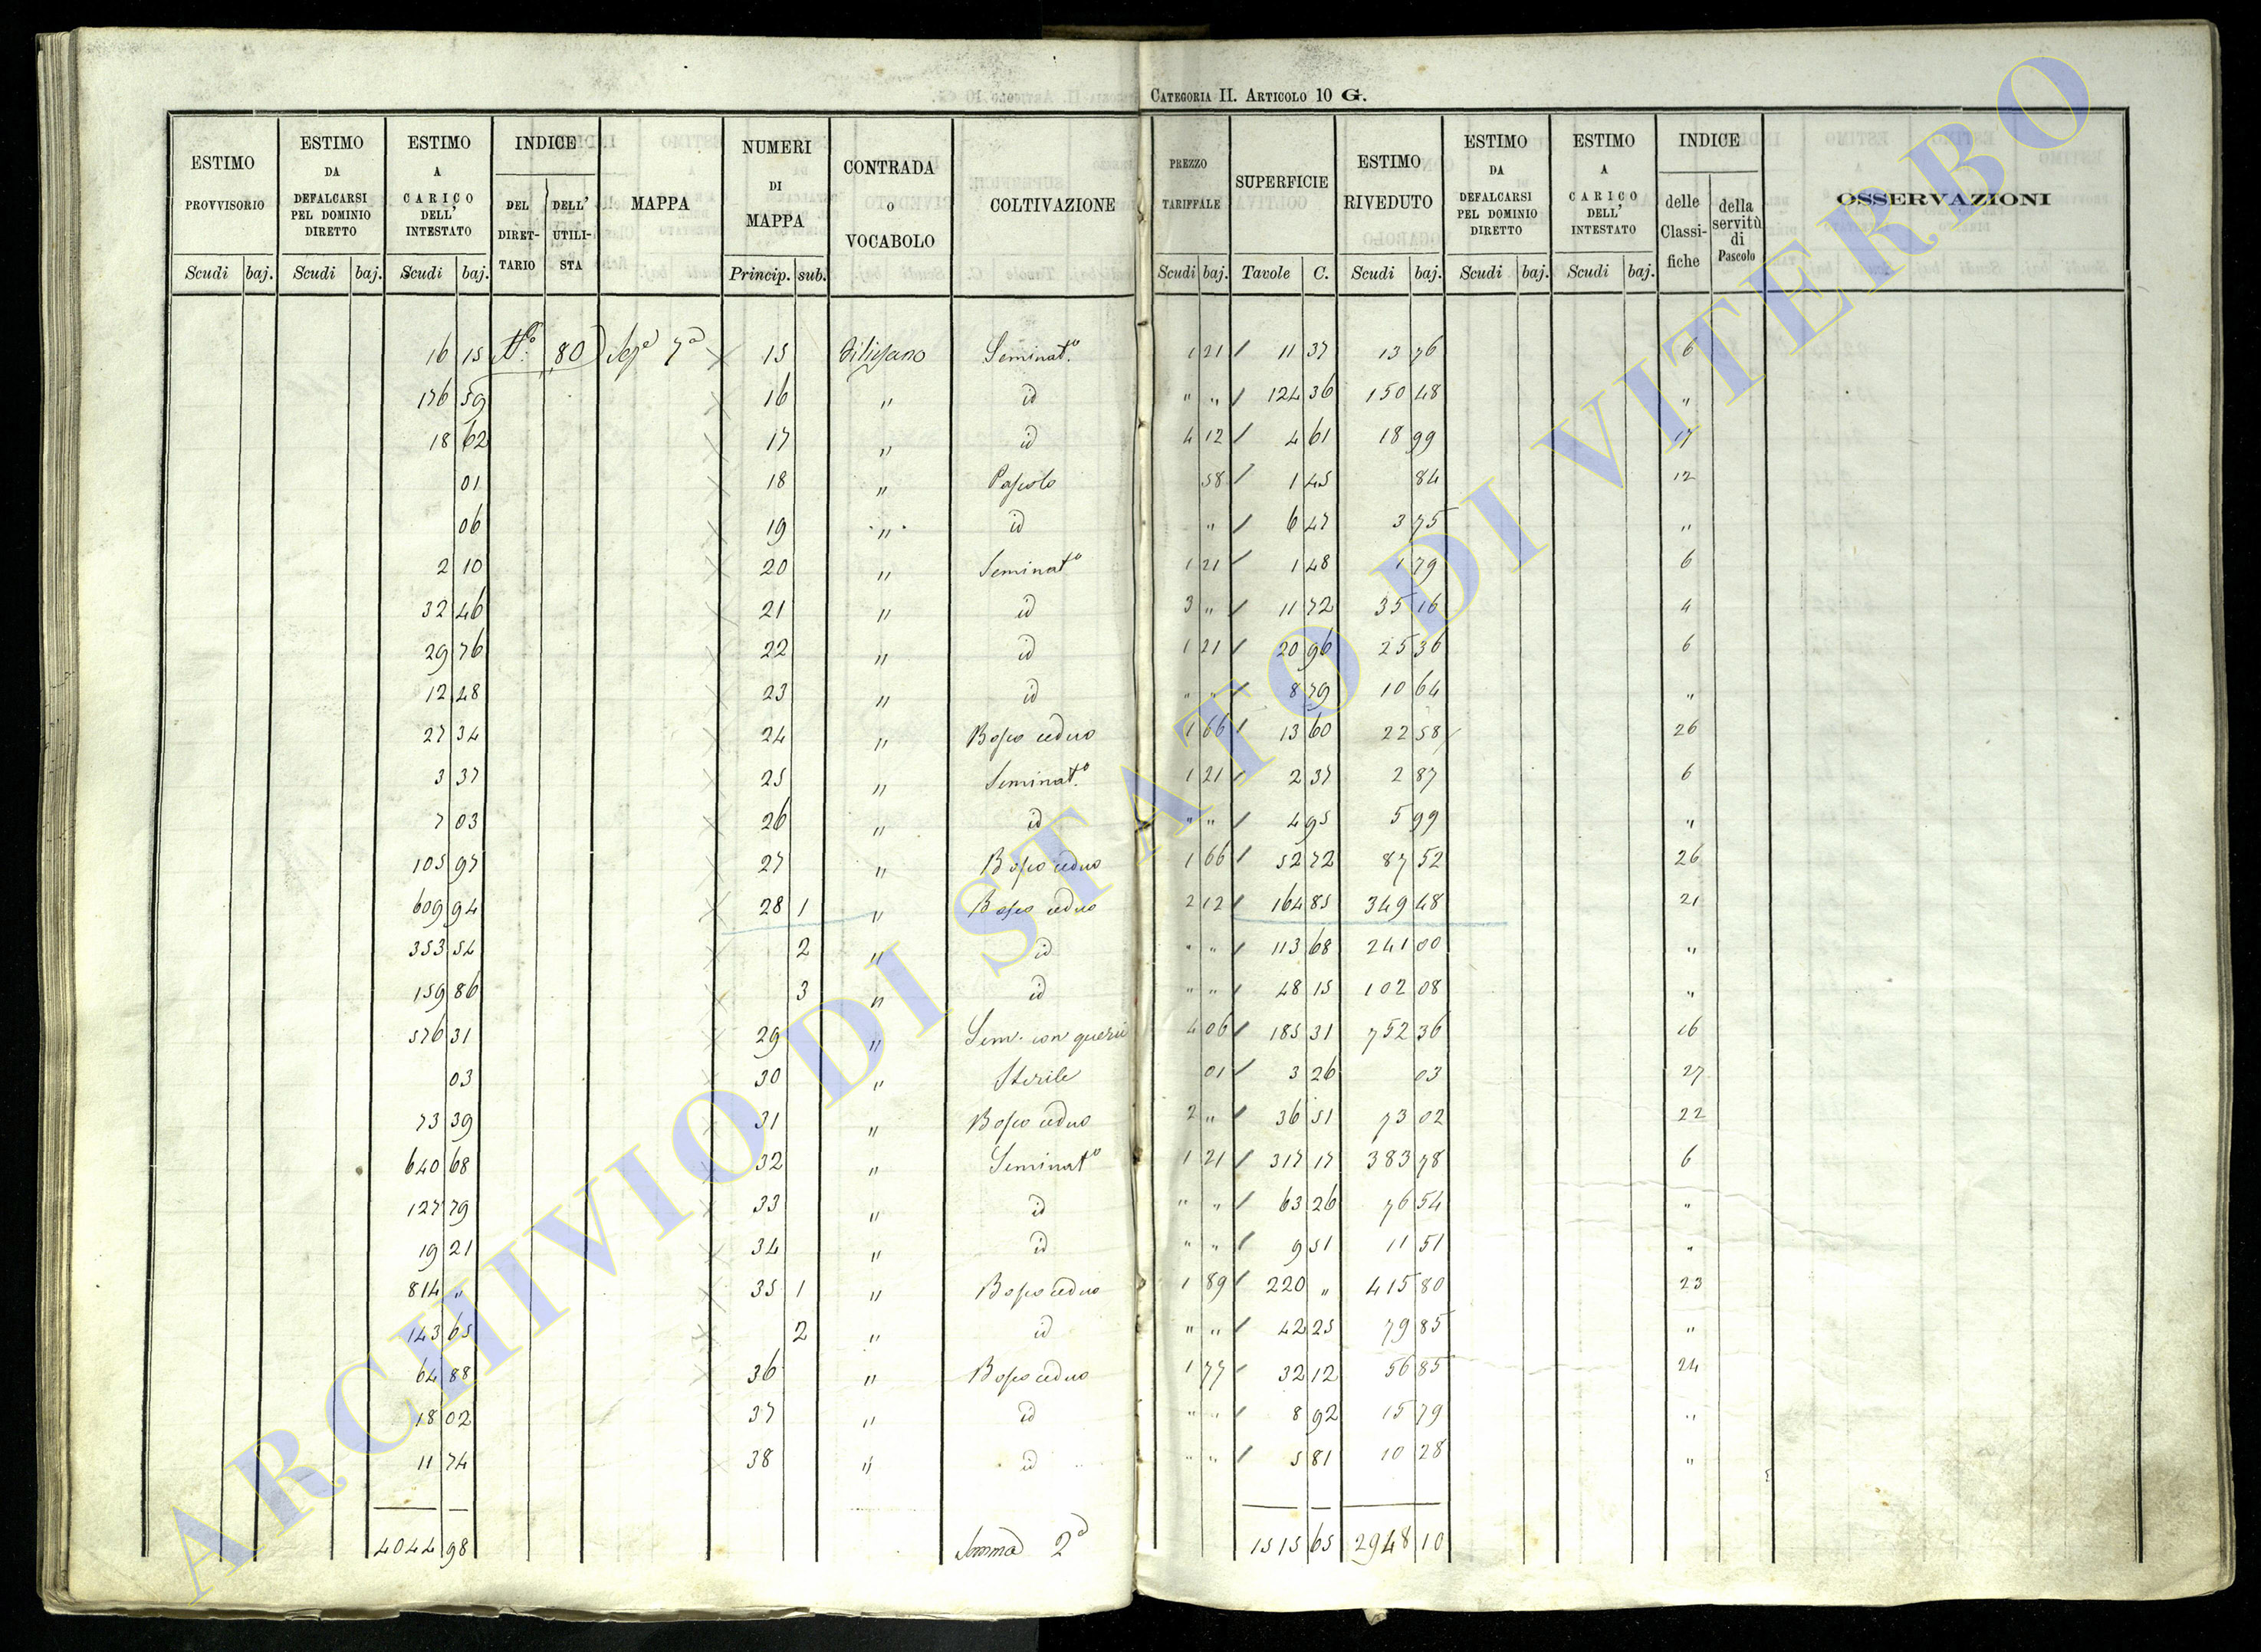 CATEGORIA II. ARTICOLO 10 G.
ESTIMO PROVVISORIO | ESTIMO DA DEFALCARSI PEL DOMINIO DIRETTO | ESTIMO A CARICO DELL' INTESTATO | INDICE DEL DIRET-TARIO | DELL' UTILI-STA | MAPPA | NUMERI DI MAPPA | CONTRADA O VOCABOLO | COLTIVAZIONE | PREZZO TARIFFALE | SUPERFICIE | ESTIMO RIVEDUTO | ESTIMO DA DEFALCARSI PEL DOMINIO DIRETTO | ESTIMO A CARICO DELL' INTESTATO | INDICE delle Classi-fiche | della servitù di Pascolo | OSSERVAZIONI
Scudi baj. | Scudi baj. | Scudi baj. | Princip. sub. | Scudi baj. | Tavole C. | Scudi baj. | Scudi baj. | Scudi baj.
16 15 | No. 80 | 7a | 15 | Seminato. | 1 21 / | 11 37 | 13 76 | 6
176 59 | 16 | " | id | " " / | 124 36 | 150 48 | "
18 62 | 17 | " | id | 4 12 / | 4 61 | 18 99 | 17
01 | 18 | " | Pascolo | 58 / | 1 45 | 84 | 12
06 | 19 | " | id | " / | 6 47 | 3 75 | "
2 10 | 20 | " | Seminato | 1 21 / | 1 48 | 1 79 | 6
32 46 | 21 | " | id | 3 " / | 11 72 | 35 16 | 4
29 76 | 22 | " | id | 1 21 / | 20 96 | 25 36 | 6
12 48 | 23 | " | id | " " / | 8 79 | 10 64 | "
27 34 | 24 | " | Bosco ceduo | 1 66 / | 13 60 | 22 58 | 26
3 37 | 25 | " | Seminato. | 1 21 / | 2 37 | 2 87 | 6
7 03 | 26 | " | id | " " / | 4 95 | 5 99 | "
105 97 | 27 | " | Bosco ceduo | 1 66 / | 52 72 | 87 52 | 26
609 94 | 28 1 | " | Bosco ceduo | 2 12 / | 164 85 | 349 48 | 21
353 54 | 2 | " | id | " " / | 113 68 | 241 00 | "
159 86 | 3 | " | id | " " / | 48 15 | 102 08 | "
576 31 | 29 | " | Sem. con querci | 4 06 / | 185 31 | 752 36 | 16
03 | 30 | " | Sterile | 01 / | 3 26 | 03 | 27
73 39 | 31 | " | Bosco ceduo | 2 " / | 36 51 | 73 02 | 22
640 68 | 32 | " | Seminato | 1 21 / | 317 17 | 383 78 | 6
127 79 | 33 | " | id | " " / | 63 26 | 76 54 | "
19 21 | 34 | " | id | " " / | 9 51 | 11 51 | "
814 " | 35 1 | " | Bosco ceduo | 1 89 / | 220 " | 415 80 | 23
143 65 | 2 | " | id | " " / | 42 25 | 79 85 | "
64 88 | 36 | " | Bosco ceduo | 1 77 / | 32 12 | 56 85 | 24
18 02 | 37 | " | id | " " / | 8 92 | 15 79 | "
11 74 | 38 | " | id | " " / | 5 81 | 10 28 | "
4044 98 | Somma 2a | 1515 65 | 2948 10
ARCHIVIO DI STATO DI VITERBO